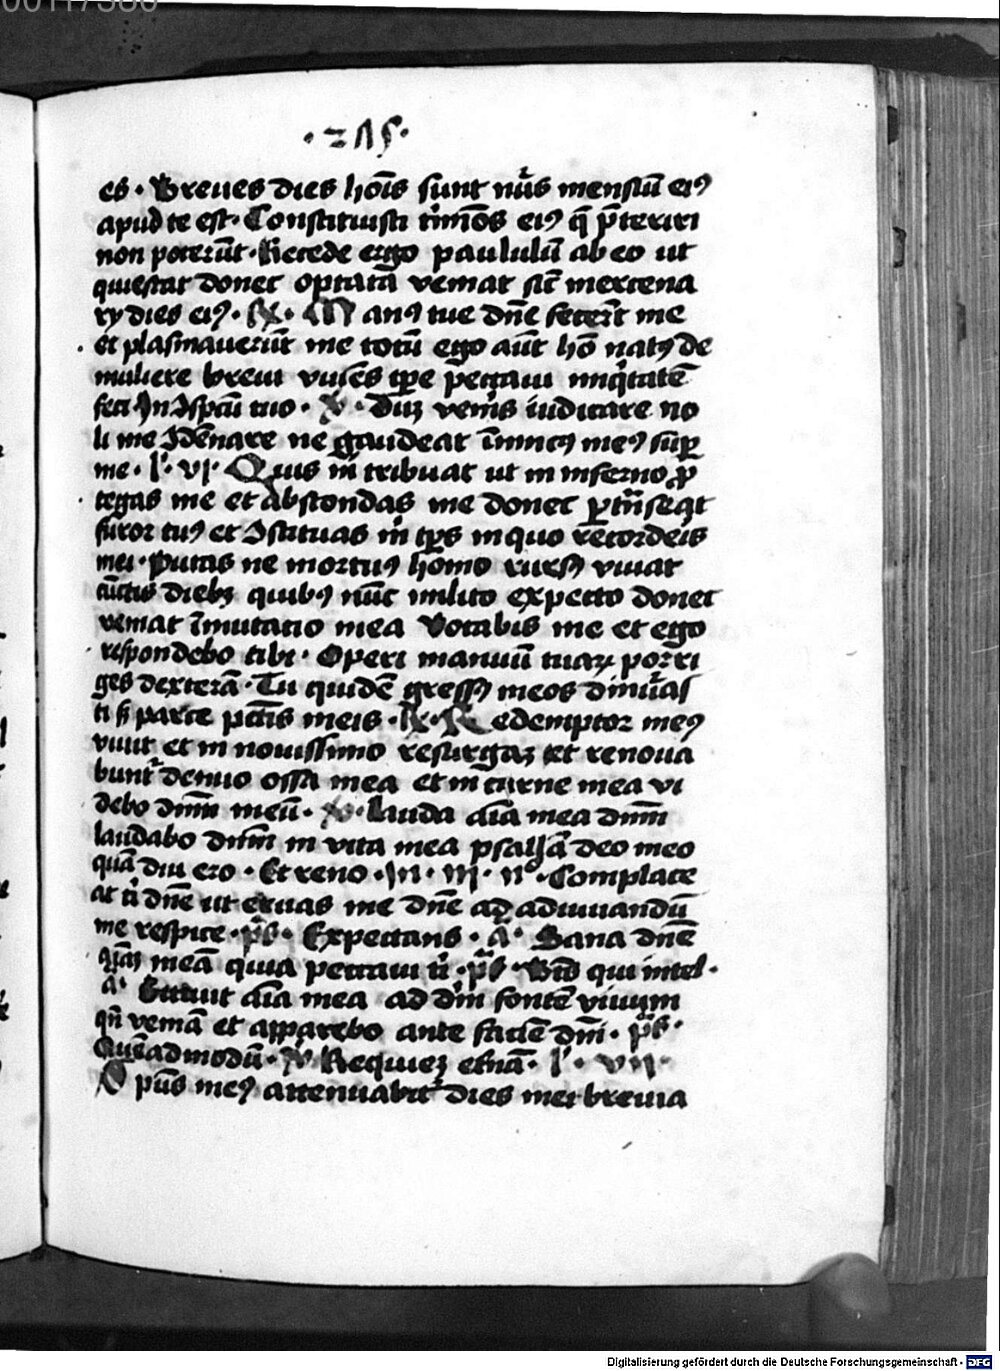 00117380
· 2 Λ 5 ·
es · Breues dies hōis sunt nūs mensiū eiꝰ
apud te est · Constituisti t̄mōs eiꝰ q̄ p̄teriri
non poterūt · Recede ergo paululū ab eo ut
quiescat donec optata veniat sic̄ mercena
ry dies eiꝰ · R · Manꝰ tue dn̄e fecer̄t me
et plasmauerūt me totū ego aūt hō natꝰ de
muliere breui viuēs tp̄e peccaui iniq̄tatē
feci In ↄspc̄u tuo · V · Dūꝫ venīs iudicare no
li me ↄdēnare ne gaudeat īmicꝰ meꝰ suꝑ
me · l' · vi · Quis m̄ tribuat ut in inferno ꝓ
tegas me et abscondas me donec ꝑtn̄seat
furor tuꝰ et ↄstituas m̄ tp̄s in quo recorderis
mei · Putas ne mortuꝰ homo rursꝰ viuat
cūctis diebꝫ quibꝰ nūc milito expecto donec
veniat īmutatio mea Vocabis me et ego
respondebo tibi · Operi manuū tuaꝝ porri
ges dexterā · Tu quidē gressꝰ meos dinūas
ti sꝫ parce pcc̄is meis · R · Redemptor meꝰ
viuit et in nouissimo resurgaꝫ et renoua
bunt᷑ denuo ossa mea et in carne mea vi
debo dn̄m meū · V · Lauda aīa mea dn̄m
laudabo dn̄m in vita mea psallā deo meo
quādiu ero · Et reno · In · iij · nº · Complace
at t̄ dn̄e ut eruas me dn̄e ad adiuuandū
me respice · p̄s · Expectans · a · Sana dn̄e
aīaꝫ meā quia peccaui t̄ · p̄s · Btūs qui intel ·
a · Sitiuit aīa mea ad dm̄ fontē viuum
qn̄ veniā et apparebo ante faciē dn̄i · p̄s ·
Quēadmodū · V · Requieꝫ et̄nā · l' · vii ·
Spūs meꝰ attenuabit᷑ dies mei breuia
Digitalisierung gefördert durch die Deutsche Forschungsgemeinschaft · DFG